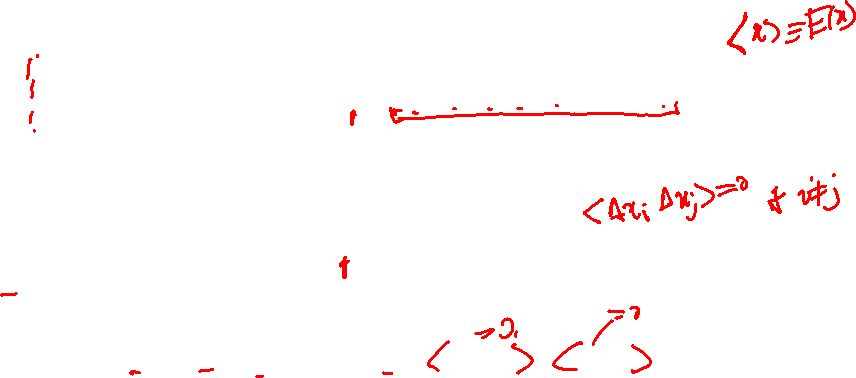 ⟨x⟩ ≡ E(x)
⟨Δxᵢ Δxⱼ⟩ = 0 if i≠j
⟨ =0 ⟩ ⟨ =0 ⟩